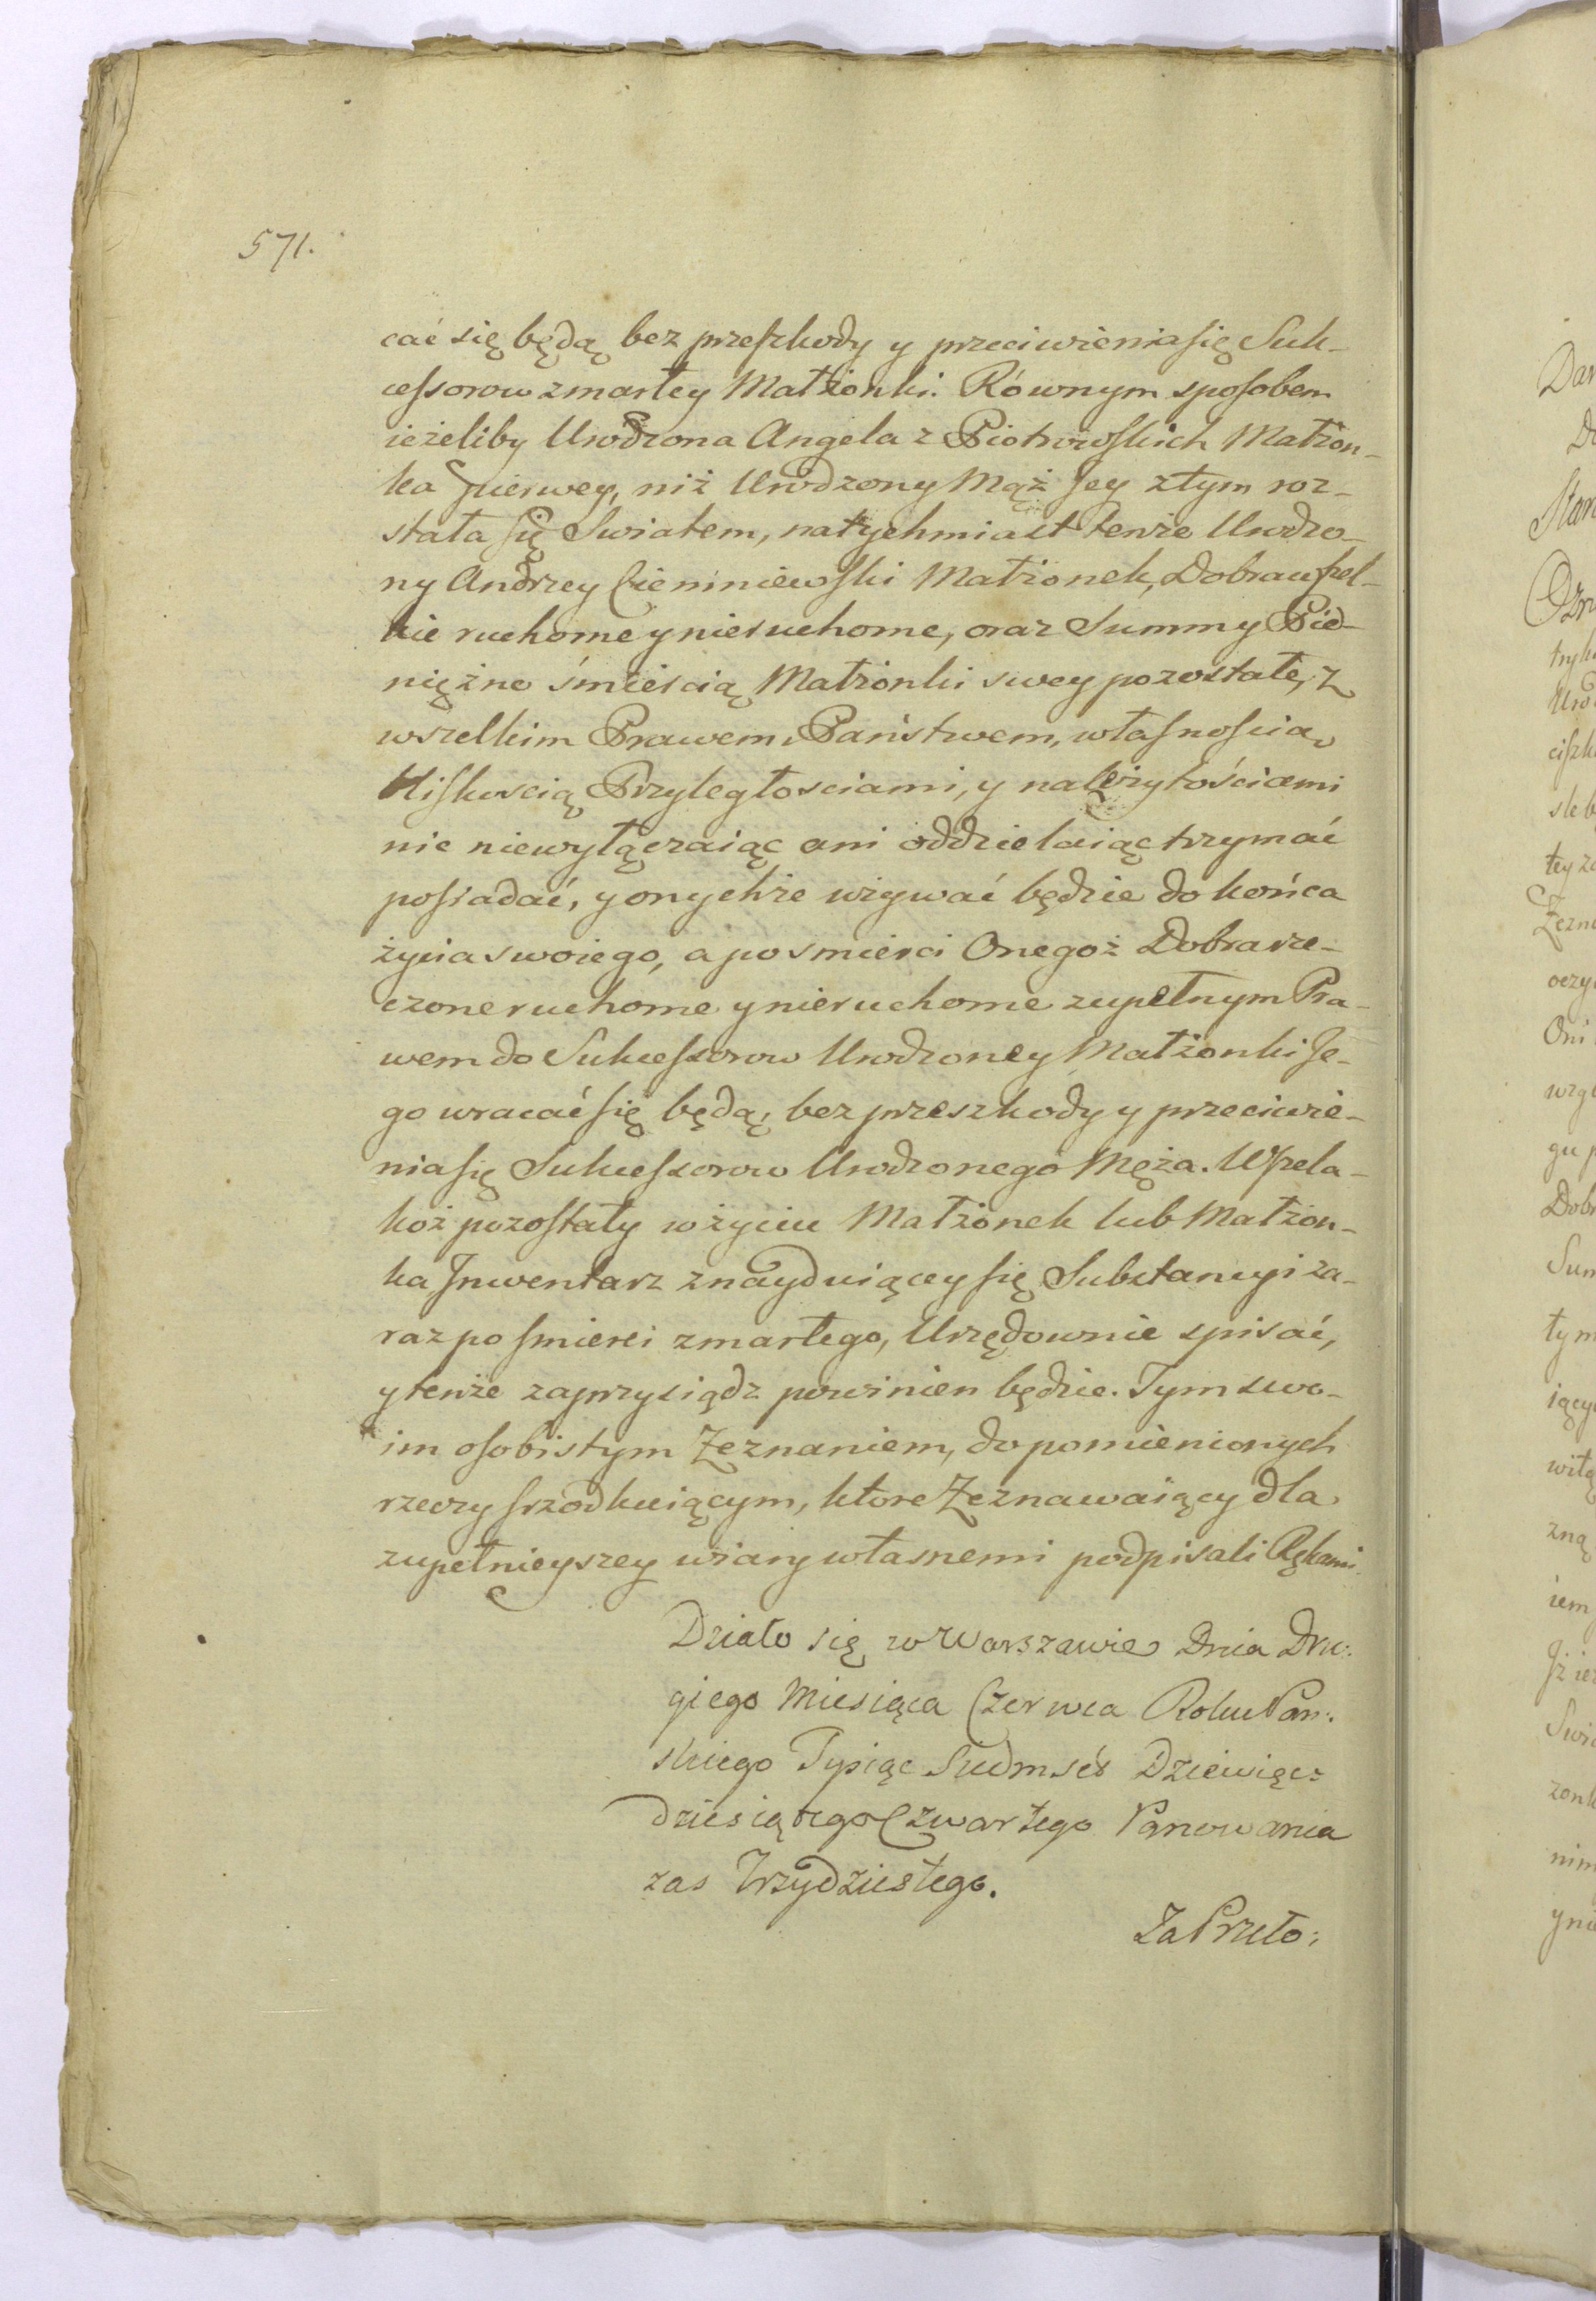 571.
cać się będą bez przeszkody y przeciwienia się Suk-
cessorow zmarłey Małżonki. Równym sposobem
ieżeliby Urodzona Angela z Piotrowskich Małżon-
ka pierwey, niż Urodzony Mąż Jey z tym roz-
stała się Swiatem, natychmiast tenże Urodzo-
ny Andrzey Cieminiewski Małżonek, Dobra wszel-
kie ruchome y nieruchome, oraz Summy Pie-
niężne śmiercią Małżonki swey pozostałe, z
wszelkim Prawem, Państwem, własnością,
Bliskością Przyległosciami, y należytościami
nic niewyłączaiąc ani oddzielaiąc trzymać
possadać, y onychże używać będzie do końca
życia swoiego, a po smierci Onegoż Dobra rze-
czone ruchome y nieruchome zupełnym Pra-
wem do Sukcessorow Urodzoney Małżonki Je-
go wracać się będą, bez przeszkody y przeciwie-
nia się Sukcessorow Urodzonego Męża. Wszela-
koż pozostały w życiu Małżonek lub Małżon-
ka Jnwentarz znayduiącey się Substancyi za-
raz po smierci zmarłego, Urzędownie spisać,
y tenże zaprzysiądz powinien będzie. Tym swo-
im osobistym Zeznaniem, do pomienionych
rzeczy srzodkuiącym, ktore Zeznawaiący dla
zupełnieyszey wiary własnemi podpisali Rękami.
Działo się w Warszawie Dnia Dru:
giego Miesiąca Czerwca Roku Pan:
skiego Tysiąc Siedmset Dziewięć:
dziesiątego Czwartego Panowania
zas Trzydziestego.
Za Przeło: